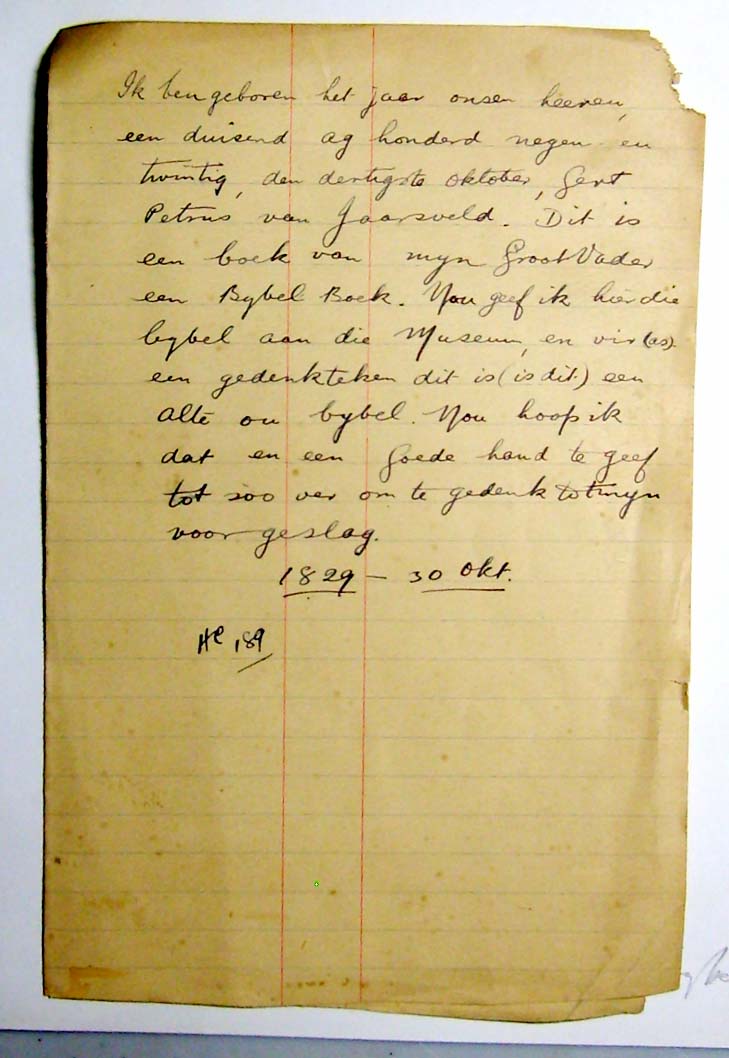 Ik ben geboren het jaar onsen heeren,
een duisend ag honderd negen en
twintig, den dertigste oktober, Gert
Petrus van Jaarsveld. Dit is
een boek van myn GrootVader
een Bybel Boek. Nou geef ik hierdie
bybel aan die Museum, en vir (as)
een gedenkteken dit is (is dit) een
alte ou bybel. Nou hoop ik
dat en een goede hand te geef
tot soo ver om te gedenk tot myn
voor geslag.
1829 – 30 Okt.
He 189